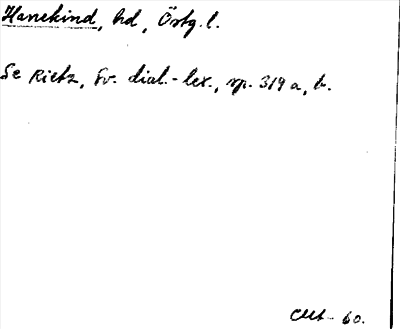 Hanekind, hd, Östg. l.
Se Rietz, Sv. dial.-lex., sp. 319 a, b.
60.